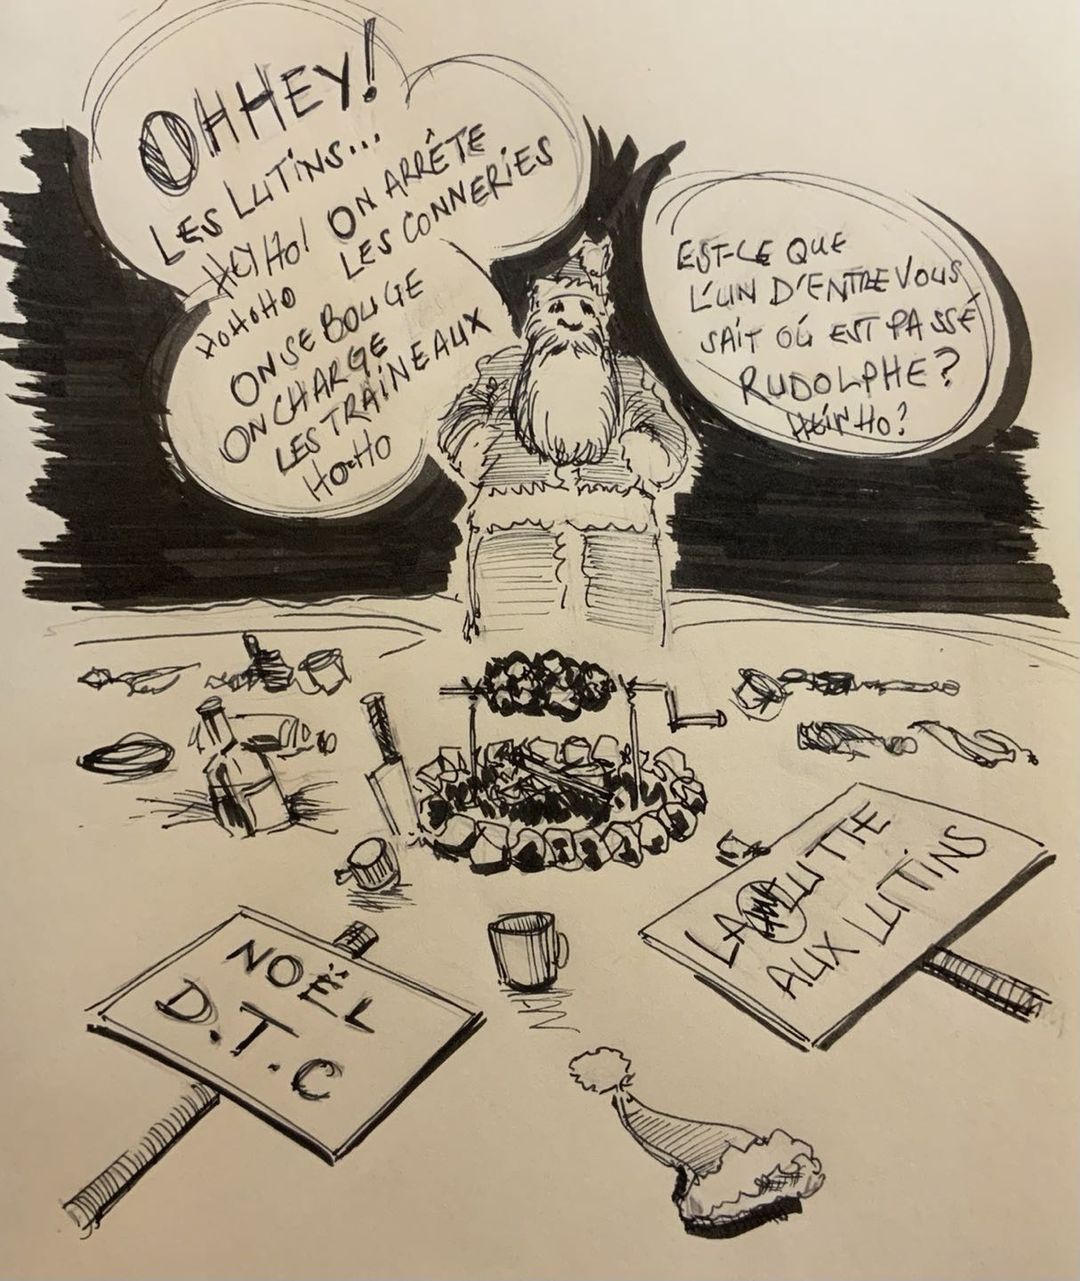 OHHEY!
LES LUTINS...
HEY HO! ON ARRÊTE
HOHOHO LES CONNERIES
ON SE BOUGE
ON CHARGE
LES TRAÎNEAUX
HO-HO
EST-CE QUE
L'UN D'ENTRE VOUS
SAIT OÙ EST PASSÉ
RUDOLPHE?
HO?
LA LUTTE
AUX LUTINS
NOËL
D.T.C